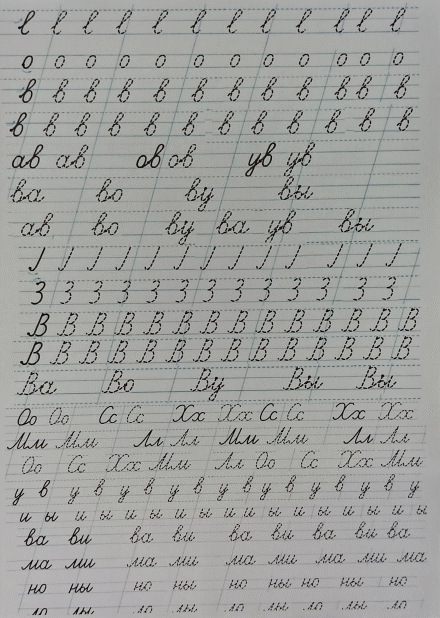 о о о о о о о о о о о о
в в в в в в в в в в в в
в в в в в в в в в в в в
ав ав ов ов ув ув
ва во ву вы
ав во ву ва ув вы
З З З З З З З З З З З З
В В В В В В В В В В В В В
В В В В В В В В В В В В В
Ва Во Ву Вы Вы
Оо Оо Сс Сс Хх Хх Сс Сс Хх Хх
Мм Мм Лл Лл Мм Мм Лл Лл
Оо Сс Хх Мм Лл Оо Сс Хх Мм
у в у в у в у в у в у в у в у в у
и ы и ы и ы и ы и ы и ы и ы и ы
ва ви ва ви ва ви ва ви ва
ма ми ма ми ма ми ма ми ма
но ны но ны но ны но ны но